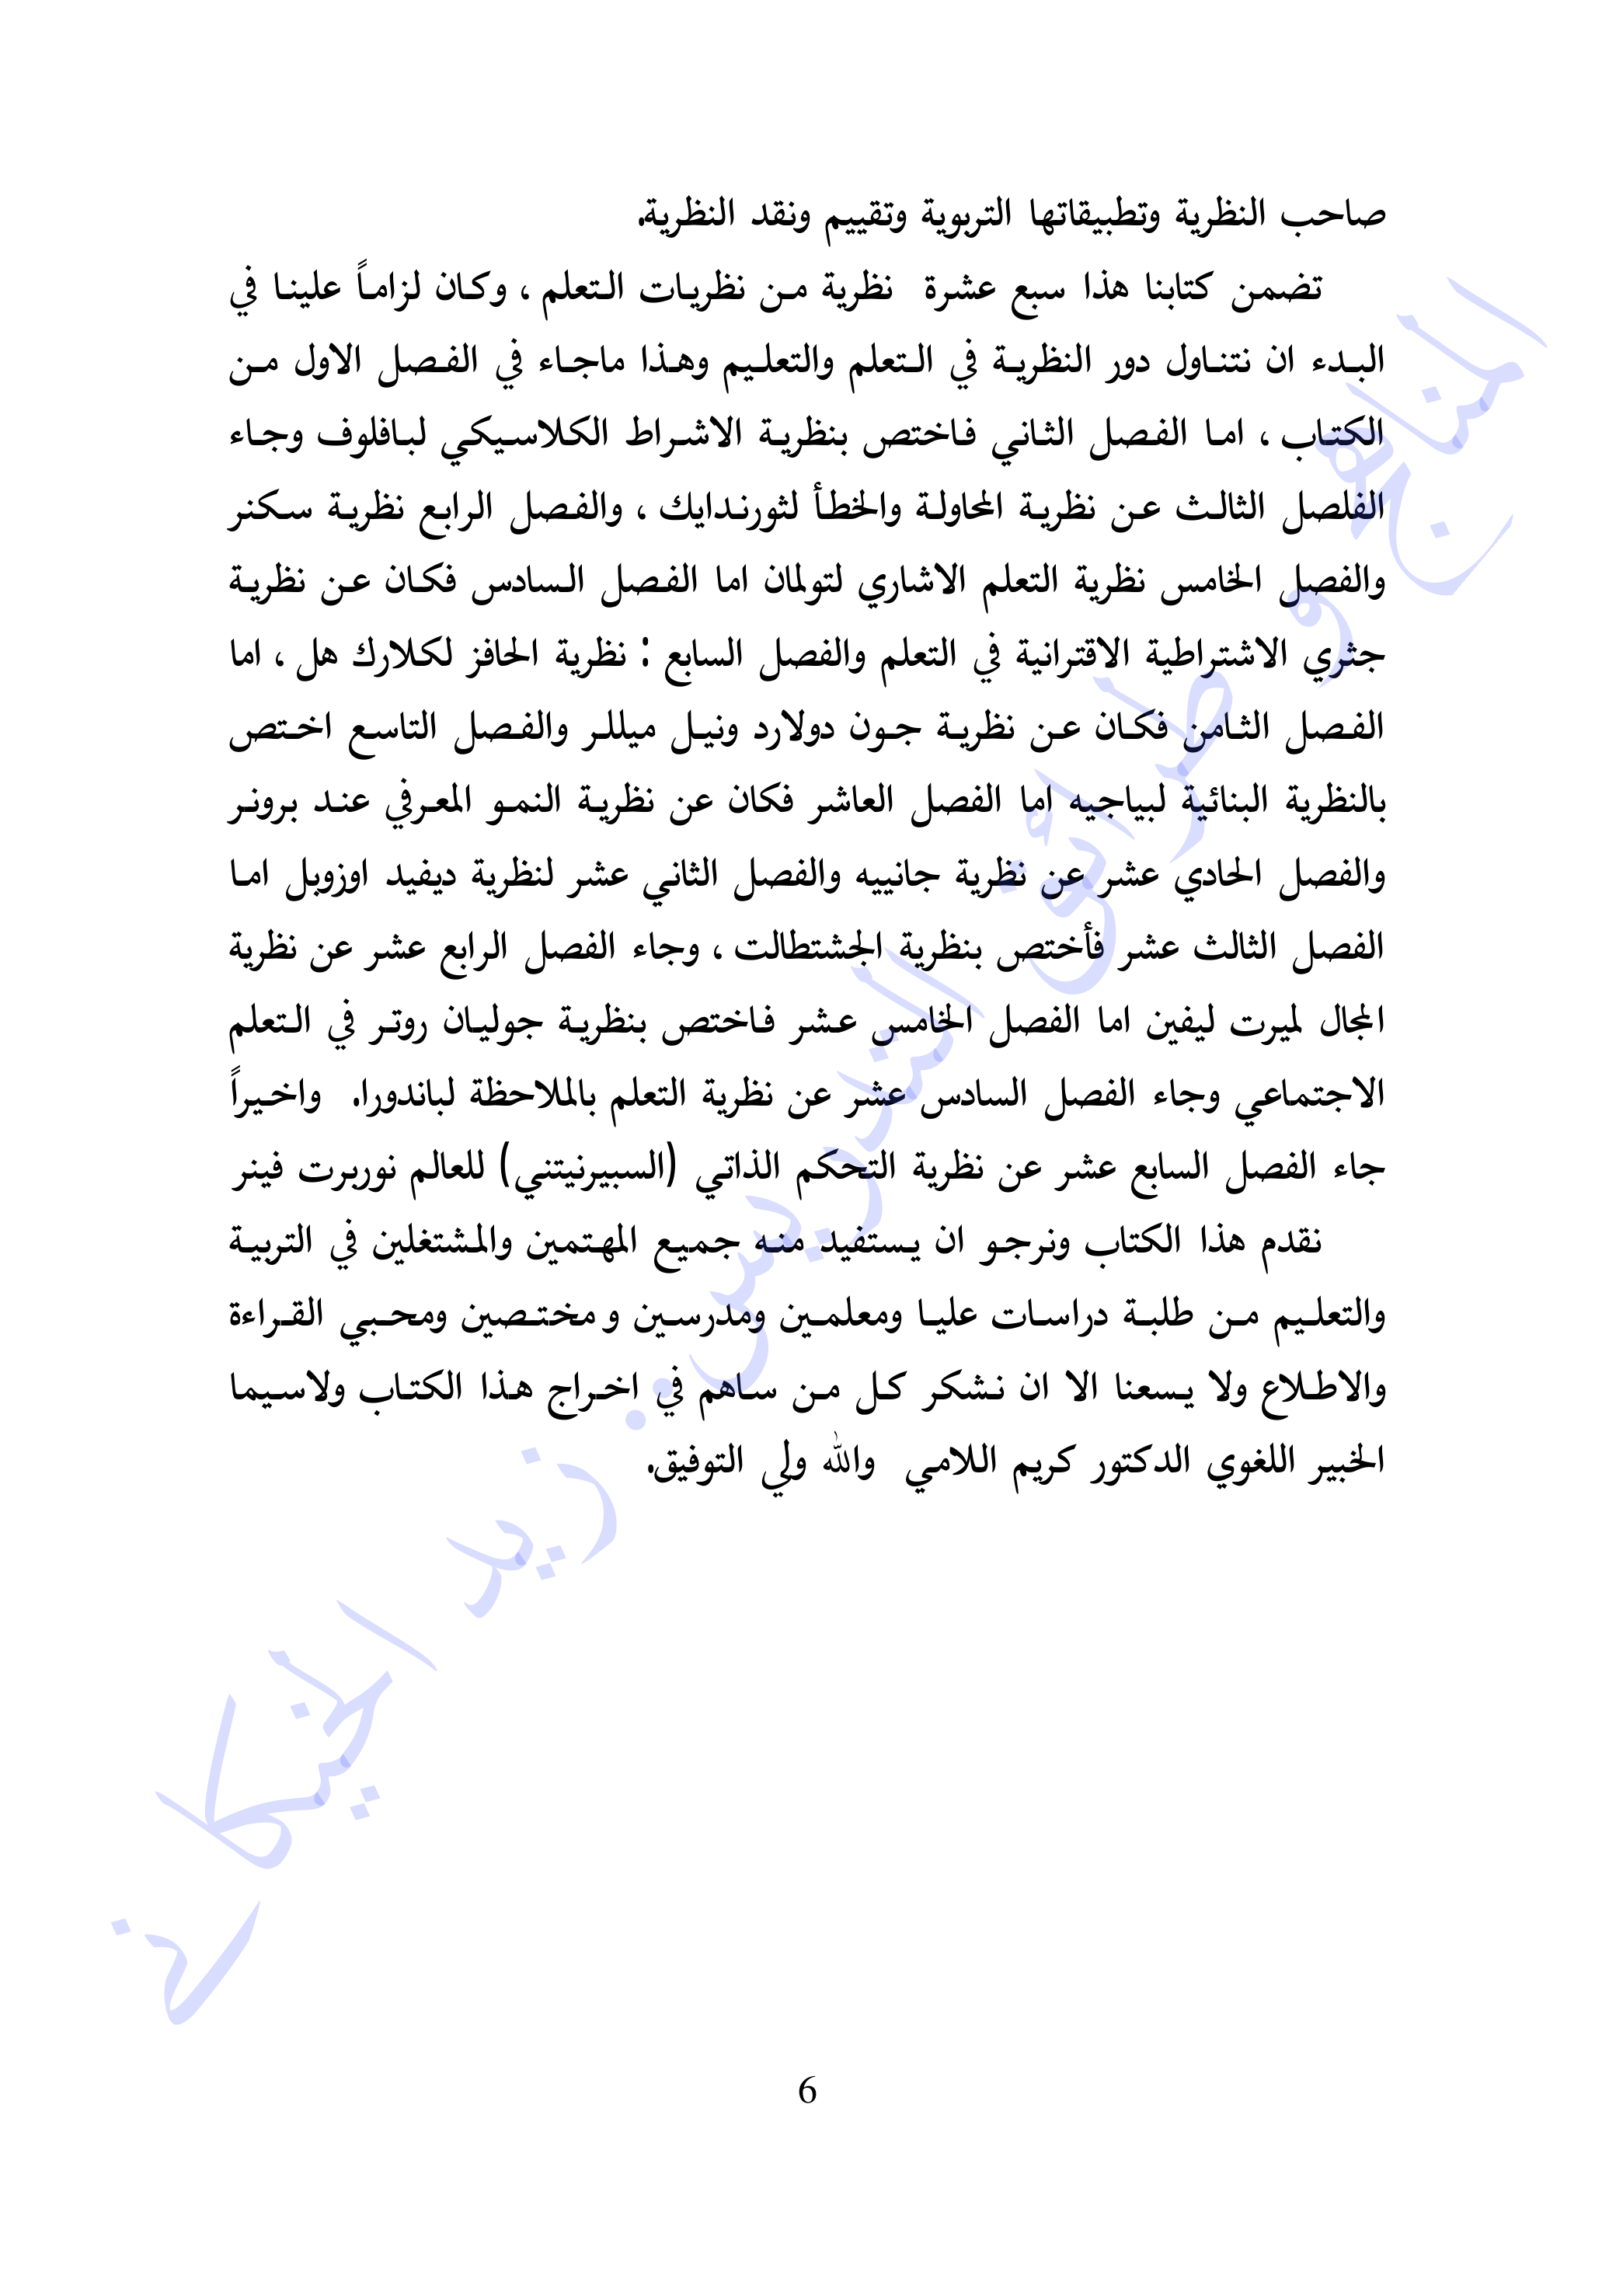 صاحب النظرية وتطبيقاتها التربوية وتقييم ونقد النظرية.
تضمن كتابنا هذا سبع عشرة نظرية من نظريات التعلم ، وكان لزاماً علينا في
البدء ان نتناول دور النظرية في التعلم والتعليم وهذا ماجاء في الفصل الاول من
الكتاب ، اما الفصل الثاني فاختص بنظرية الاشراط الكلاسيكي لبافلوف وجاء
الفلصل الثالث عن نظرية المحاولة والخطأ لثورندايك ، والفصل الرابع نظرية سكنر
والفصل الخامس نظرية التعلم الاشاري لتولمان اما الفصل السادس فكان عن نظرية
جثري الاشتراطية الاقترانية في التعلم والفصل السابع : نظرية الحافز لكلارك هل ، اما
الفصل الثامن فكان عن نظرية جون دولارد ونيل ميللر والفصل التاسع اختص
بالنظرية البنائية لبياجيه اما الفصل العاشر فكان عن نظرية النمو المعرفي عند برونر
والفصل الحادي عشر عن نظرية جانييه والفصل الثاني عشر لنظرية ديفيد اوزوبل اما
الفصل الثالث عشر فأختص بنظرية الجشتطالت ، وجاء الفصل الرابع عشر عن نظرية
المجال لميرت ليفين اما الفصل الخامس عشر فاختص بنظرية جوليان روتر في التعلم
الاجتماعي وجاء الفصل السادس عشر عن نظرية التعلم بالملاحظة لباندورا. واخيراً
جاء الفصل السابع عشر عن نظرية التحكم الذاتي (السبيرنيتني) للعالم نوربرت فينر
نقدم هذا الكتاب ونرجو ان يستفيد منه جميع المهتمين والمشتغلين في التربية
والتعليم من طلبة دراسات عليا ومعلمين ومدرسين و مختصين ومحبي القراءة
والاطلاع ولا يسعنا الا ان نشكر كل من ساهم في اخراج هذا الكتاب ولاسيما
الخبير اللغوي الدكتور كريم اللامي والله ولي التوفيق.
المناهج وطرائق التدريس.. زيد الخيكاني
6